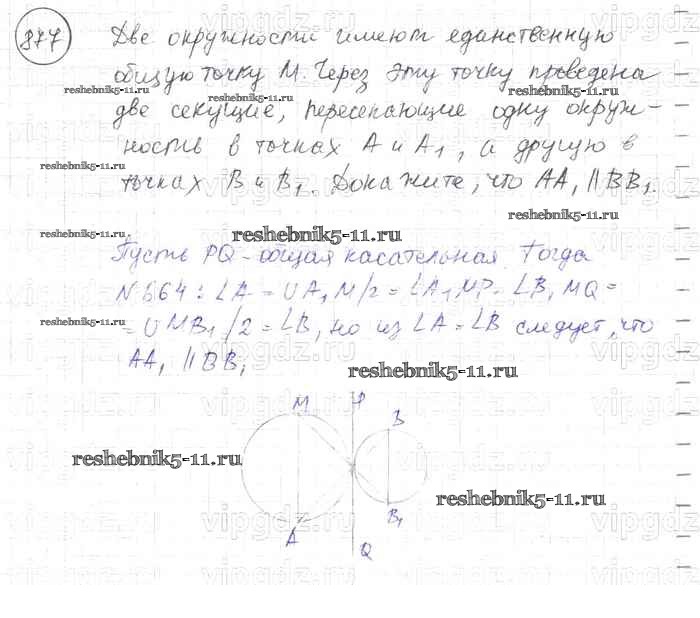 877
Две окружности имеют единственную
общую точку М. Через эту точку проведена
две секущие, пересекающие одну окруж-
ность в точках A и A₁, а другую в
точках B и B₁. Докажите, что AA₁ ∥ BB₁.
Пусть PQ - общая касательная. Тогда
N 664: ∠A = ∪A₁M/2 = ∠A₁MP = ∠B₁MQ =
= ∪MB₁/2 = ∠B, но из ∠A = ∠B следует, что
AA₁ ∥ BB₁
M P B
A B₁
Q
reshebnik5-11.ru
reshebnik5-11.ru
reshebnik5-11.ru
reshebnik5-11.ru
reshebnik5-11.ru
reshebnik5-11.ru
reshebnik5-11.ru
reshebnik5-11.ru
reshebnik5-11.ru
vipgdz.ru